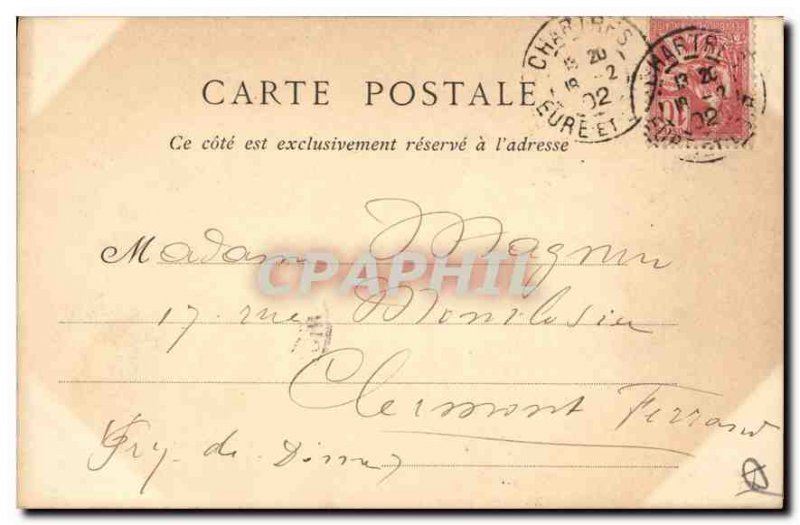 CARTE POSTALE
Ce côté est exclusivement réservé à l'adresse
CHARTRES
13 20
18 -2
02
EURE ET
CHARTRE
13 20
18 -2
02
Madame Magnin
CPAPHIL
17. rue Montlosier
Clermont Ferrand
Puy. de Dôme